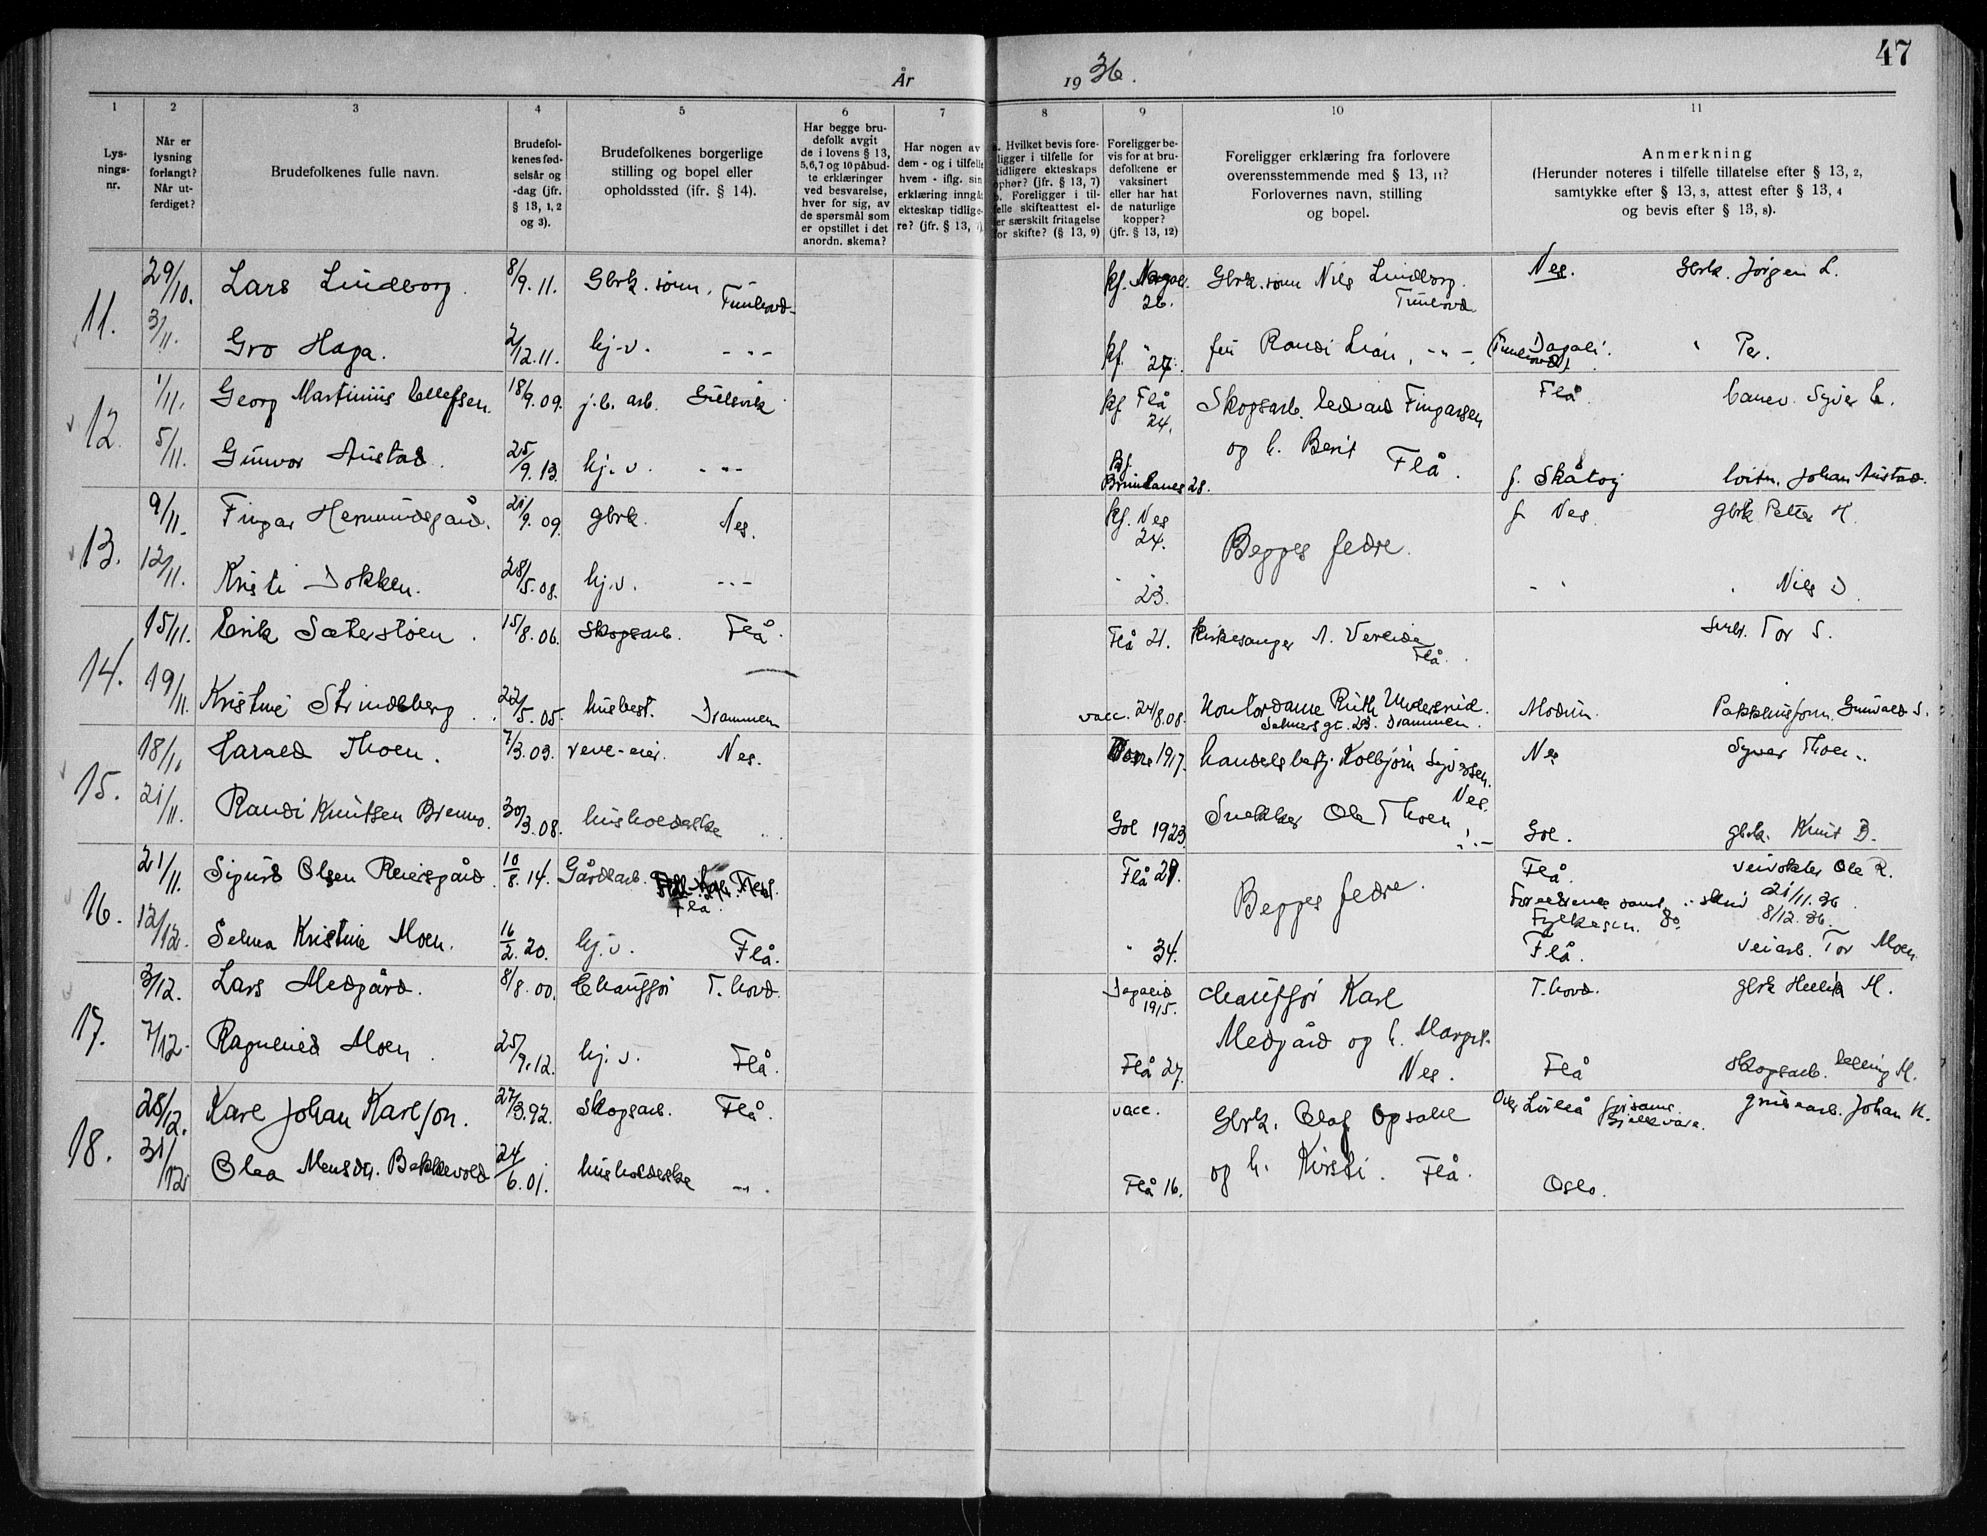 47
År 1936.
1 2 3 4 5 6 7 8 9 10 11
Lys-
nings-
nr.
Når er
lysning
forlangt?
Når ut-
ferdiget?
Brudefolkenes fulle navn.
Brudefol-
kenes fød-
selsår og
-dag (jfr.
§ 13, 1, 2
og 3).
Brudefolkenes borgerlige
stilling og bopel eller
opholdssted (ifr. § 14).
Har begge bru-
defolk avgit
de i lovens § 13,
5,6,7 og 10 påbud-
te erklæringer
ved besvarelse,
hver for sig, av
de spørsmål som
er opstillet i det
anordn. skema?
Har nogen av
dem - og i tilfelle
hvem - iflg. sin
erklæring inngå
ekteskap tidlige-
re? (jfr. § 13, 7)
. Hvilket bevis fore-
ligger i tilfelle for
tidligere ekteskaps
opher? (jfr. § 13, 7)
. Foreligger i til-
felle skifteattest el-
er særskilt fritagelse
for skifte? (§ 13, 9)
Foreligger be-
vis for at bru-
defolkene er
vaksinert
eller har hat
de naturlige
kopper?
(jfr. § 13, 12)
Foreligger erklæring fra forlovere
overensstemmende med § 13, 11?
Forlovernes navn, stilling
og bopel.
Anmerkning
(Herunder noteres i tilfelle tillatelse efter § 13, 2,
samtykke efter § 13, 3, attest efter § 13, 4
og bevis efter § 13, 8).
11. 29/10. Lars Lindborg. 8/9. 11. Gbrk. sønn, Tunhovd kf. 26. Gbrk. sønn Nils Lindborg. Tunhovd Nes. Gbrk. Jørgen L.
3/11. Gro Haga. 2/12. 11. hj-v. - " - kf. " 27. frk Randi Lian, - " - (Tunhovd) Dagali. " Per.
12. 1/11. Georg Martinius Ellefsen. 18/9. 09. j.b. arb. Gulsvik kf Flå 24. Skogsarb. Edvard Fingarsen Flå. Syver E.
5/11. Gunvor Austad. 25/9. 13. hj. v. - " - kf. 28. og h. Berit Flå. f. Skåtøy Johan Austad.
13. 9/11. Fingar Hermundsgård. 21/9. 09. gbrk. Nes. kf. Nes 24. Begges fedre. f. Nes. gbrk Petter H.
12/11. Kristi Dokken. 28/5. 08. hj. v. - " - " 23. - " " Nils D.
14. 15/11. Erik Sæterstøen. 15/8. 06. skogsarb. Flå. Flå 21. Kirkesanger A. Vereide Flå. Tor S.
19/11. Kristine Strindeberg. 22/5. 05. husbest. Drammen vacc. 24/8. 08. Kontordame Ruth Underlid. Drammen. Modum. Pakkhusform. Gunvald S.
15. 18/11 Harald Thoen. 7/3. 03. reve-eier. Nes. 1917. handelsbestj. Kolbjørn Syversen. Nes. Nes Syver Thoen.
21/11. Randi Knutsen Brenno. 30/3. 08. husholderske " Gol 1923. Snekker Ole Thoen, - " - Gol. gbrk. Knut B.
16. 21/11. Sigurd Olsen Reiersgård. 10/8. 14. Gårdsarb. Flå. Flå 29. Begges fedre. Flå. veivokter Ole R.
Foreldrenes samt. 21/11. 36.
Fylkesm. do 8/12. 36.
12/12. Selma Kristine Moen. 16/2. 20. hj. v. Flå. " 34. Flå. veiarb. Tor Moen
17. 3/12. Lars Medgård. 8/8. 00. Chauffør T. hovd. Dagalid 1915. Chauffør Karl T. hovd. gbrk M.
7/12. Ragnhild Moen. 25/9. 12. hj. v. Flå. Flå 27. Medgård og h. Margit. Nes. Flå skogsarb. Elling M.
18. 28/12. Karl Johan Karlson. 27/3. 92. Skogsarb. Flå. vacc. Gbrk. Olaf Opsahl Gjellivare. grubearb. Johan K.
31/12 Olea Monsdtr. Bekkevold 24/6. 01. husholderske - " - Flå 16. og h. Kirsti. Flå. Oslo.